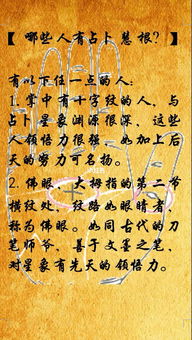 【哪些人有占卜慧根？】
有以下任一点的人：
1.掌中有十字纹的人，与
占卜星象渊源很深，这些
人领悟力很强，如加上后
天的努力可名扬。
2.佛眼、大拇指的第二节
横纹处，纹路如眼睛者，
称为佛眼。如同古代的刀
笔师爷，善于文墨之笔，
对星象有先天的领悟力。